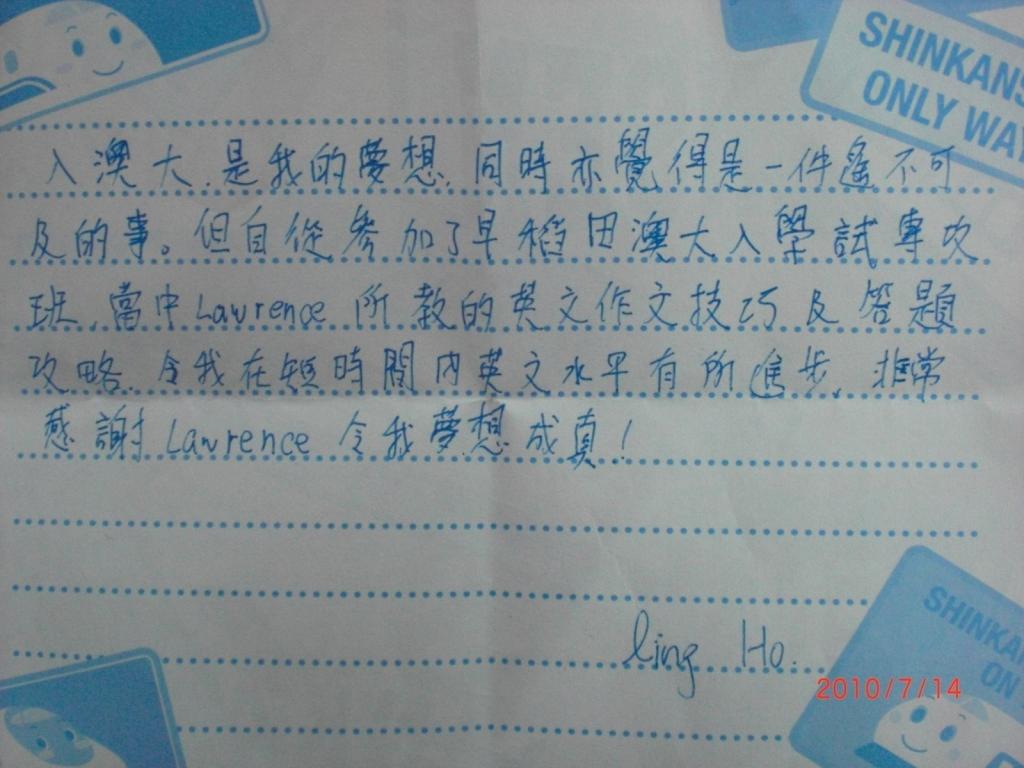 SHINKANS
ONLY WA
入澳大,是我的夢想,同時亦覺得是一件遙不可
及的事。但自從參加了早稻田澳大入學試專攻
班,當中Lawrence 所教的英文作文技巧及答題
攻略,令我在短時間內英文水平有所進步,非常
感謝Lawrence 令我夢想成真!
ling Ho.
SHINKA
ON
2010/7/14